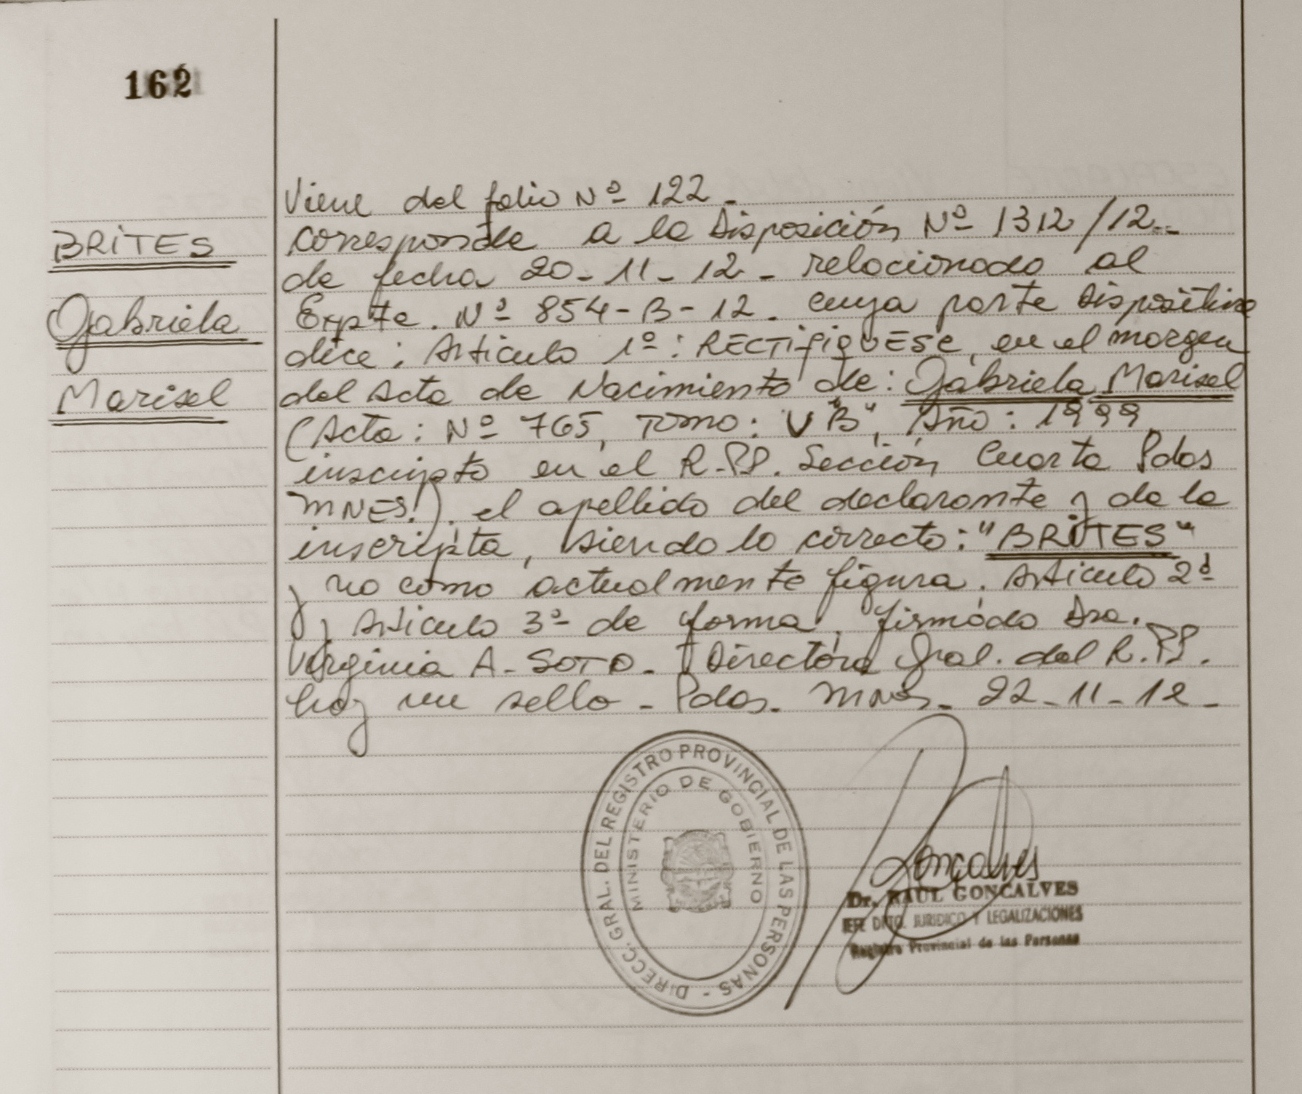 162
BRITES
Gabriela
Marisel
Viene del folio Nº 122.
corresponde a la Disposición Nº 1312/12.-
de fecha 20-11-12- relacionado al
Expte. Nº 854-B-12. cuya parte dispositiva
dice: Artículo 1º: RECTIFIQUESE, en el margen
del Acta de Nacimiento de: Gabriela Marisel
(Acta: Nº 765, Tomo: V "B", Año: 1999,
inscripto en el R.PP. Sección Cuarta Pdas
MNES.). el apellido del declarante y de la
inscripta, siendo lo correcto: "BRITES"
y no como actualmente figura. Artículo 2º
y Artículo 3º de forma, firmado Dra.
Virginia A. SOTO- Directora Gral. del R.PP.
hay un sello - Pdas. Mnes. 22-11-12-
DIRECC. GRAL. DEL REGISTRO PROVINCIAL DE LAS PERSONAS -
MINISTERIO DE GOBIERNO
Goncalves
Dr. RAUL GONCALVES
JEFE DPTO. JURIDICO Y LEGALIZACIONES
Registro Provincial de las Personas